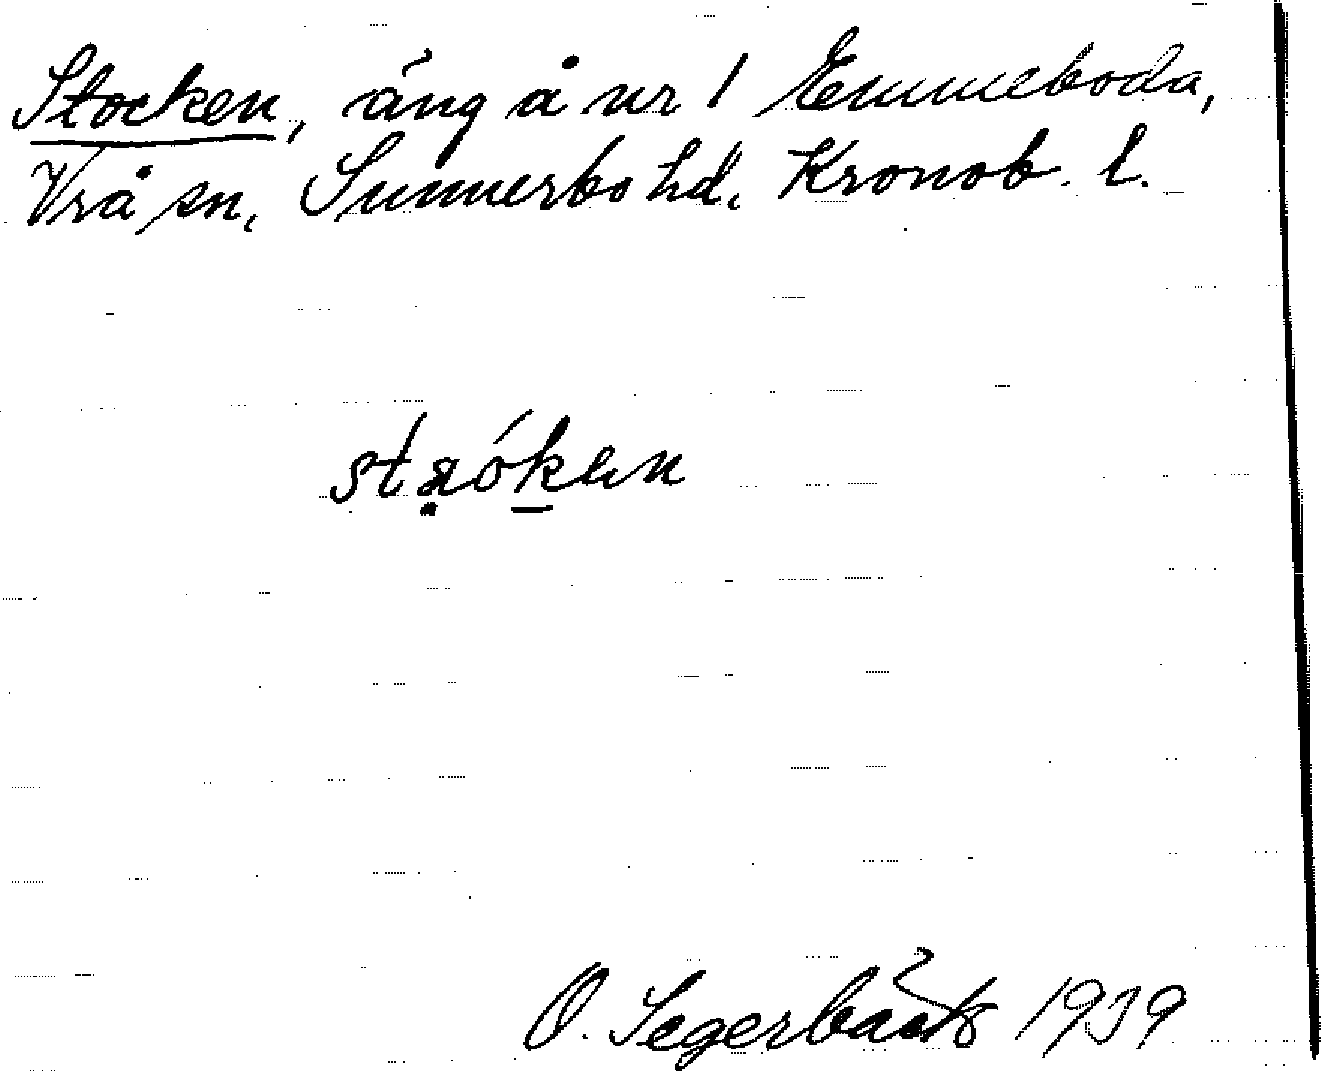 Stocken, äng å nr 1 Emmeboda,
Vrå sn, Sunnerbo hd. Kronob. l.
O. Segerbäck 1939